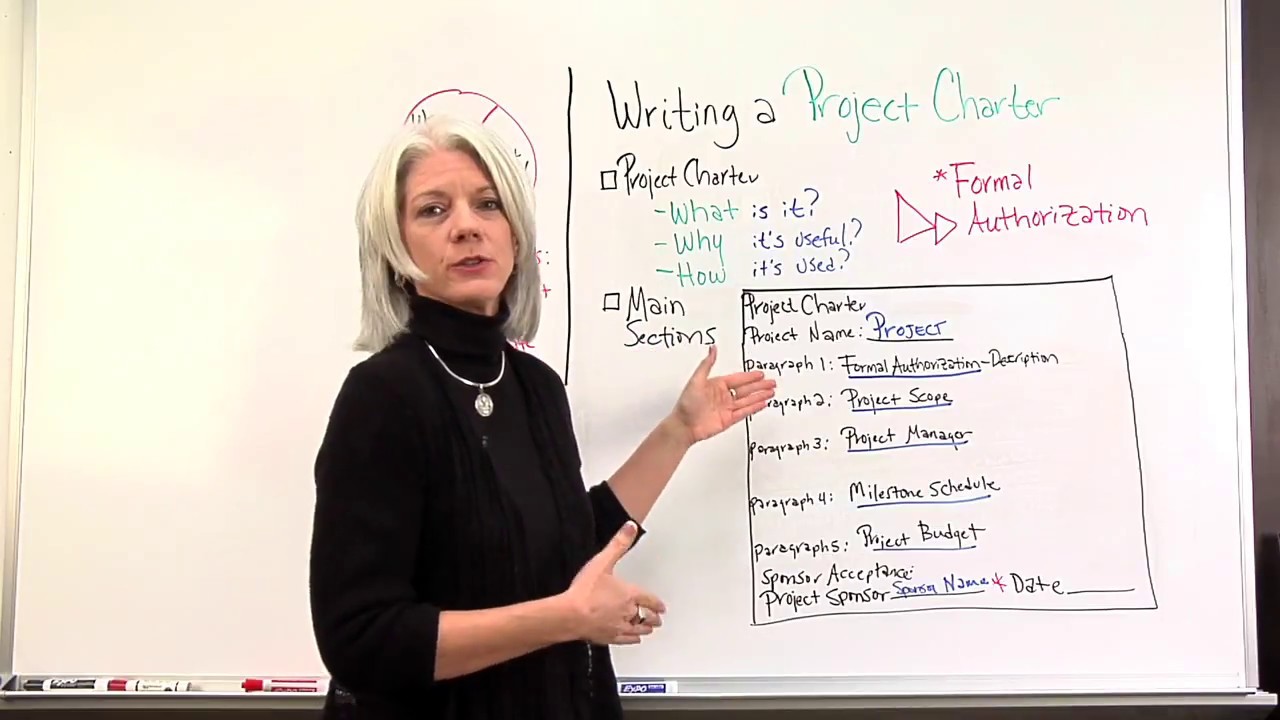 Writing a Project Charter
□ Project Charter
- What is it?
- Why it's useful?
- How it's used?
* Formal
Authorization
□ Main
Sections
Project Charter
Project Name: PROJECT
Paragraph 1: Formal Authorization - Description
Paragraph 2: Project Scope
Paragraph 3: Project Manager
Paragraph 4: Milestone Schedule
Paragraph 5: Project Budget
Sponsor Acceptance:
Project Sponsor Sponsor Name * Date
EXPO